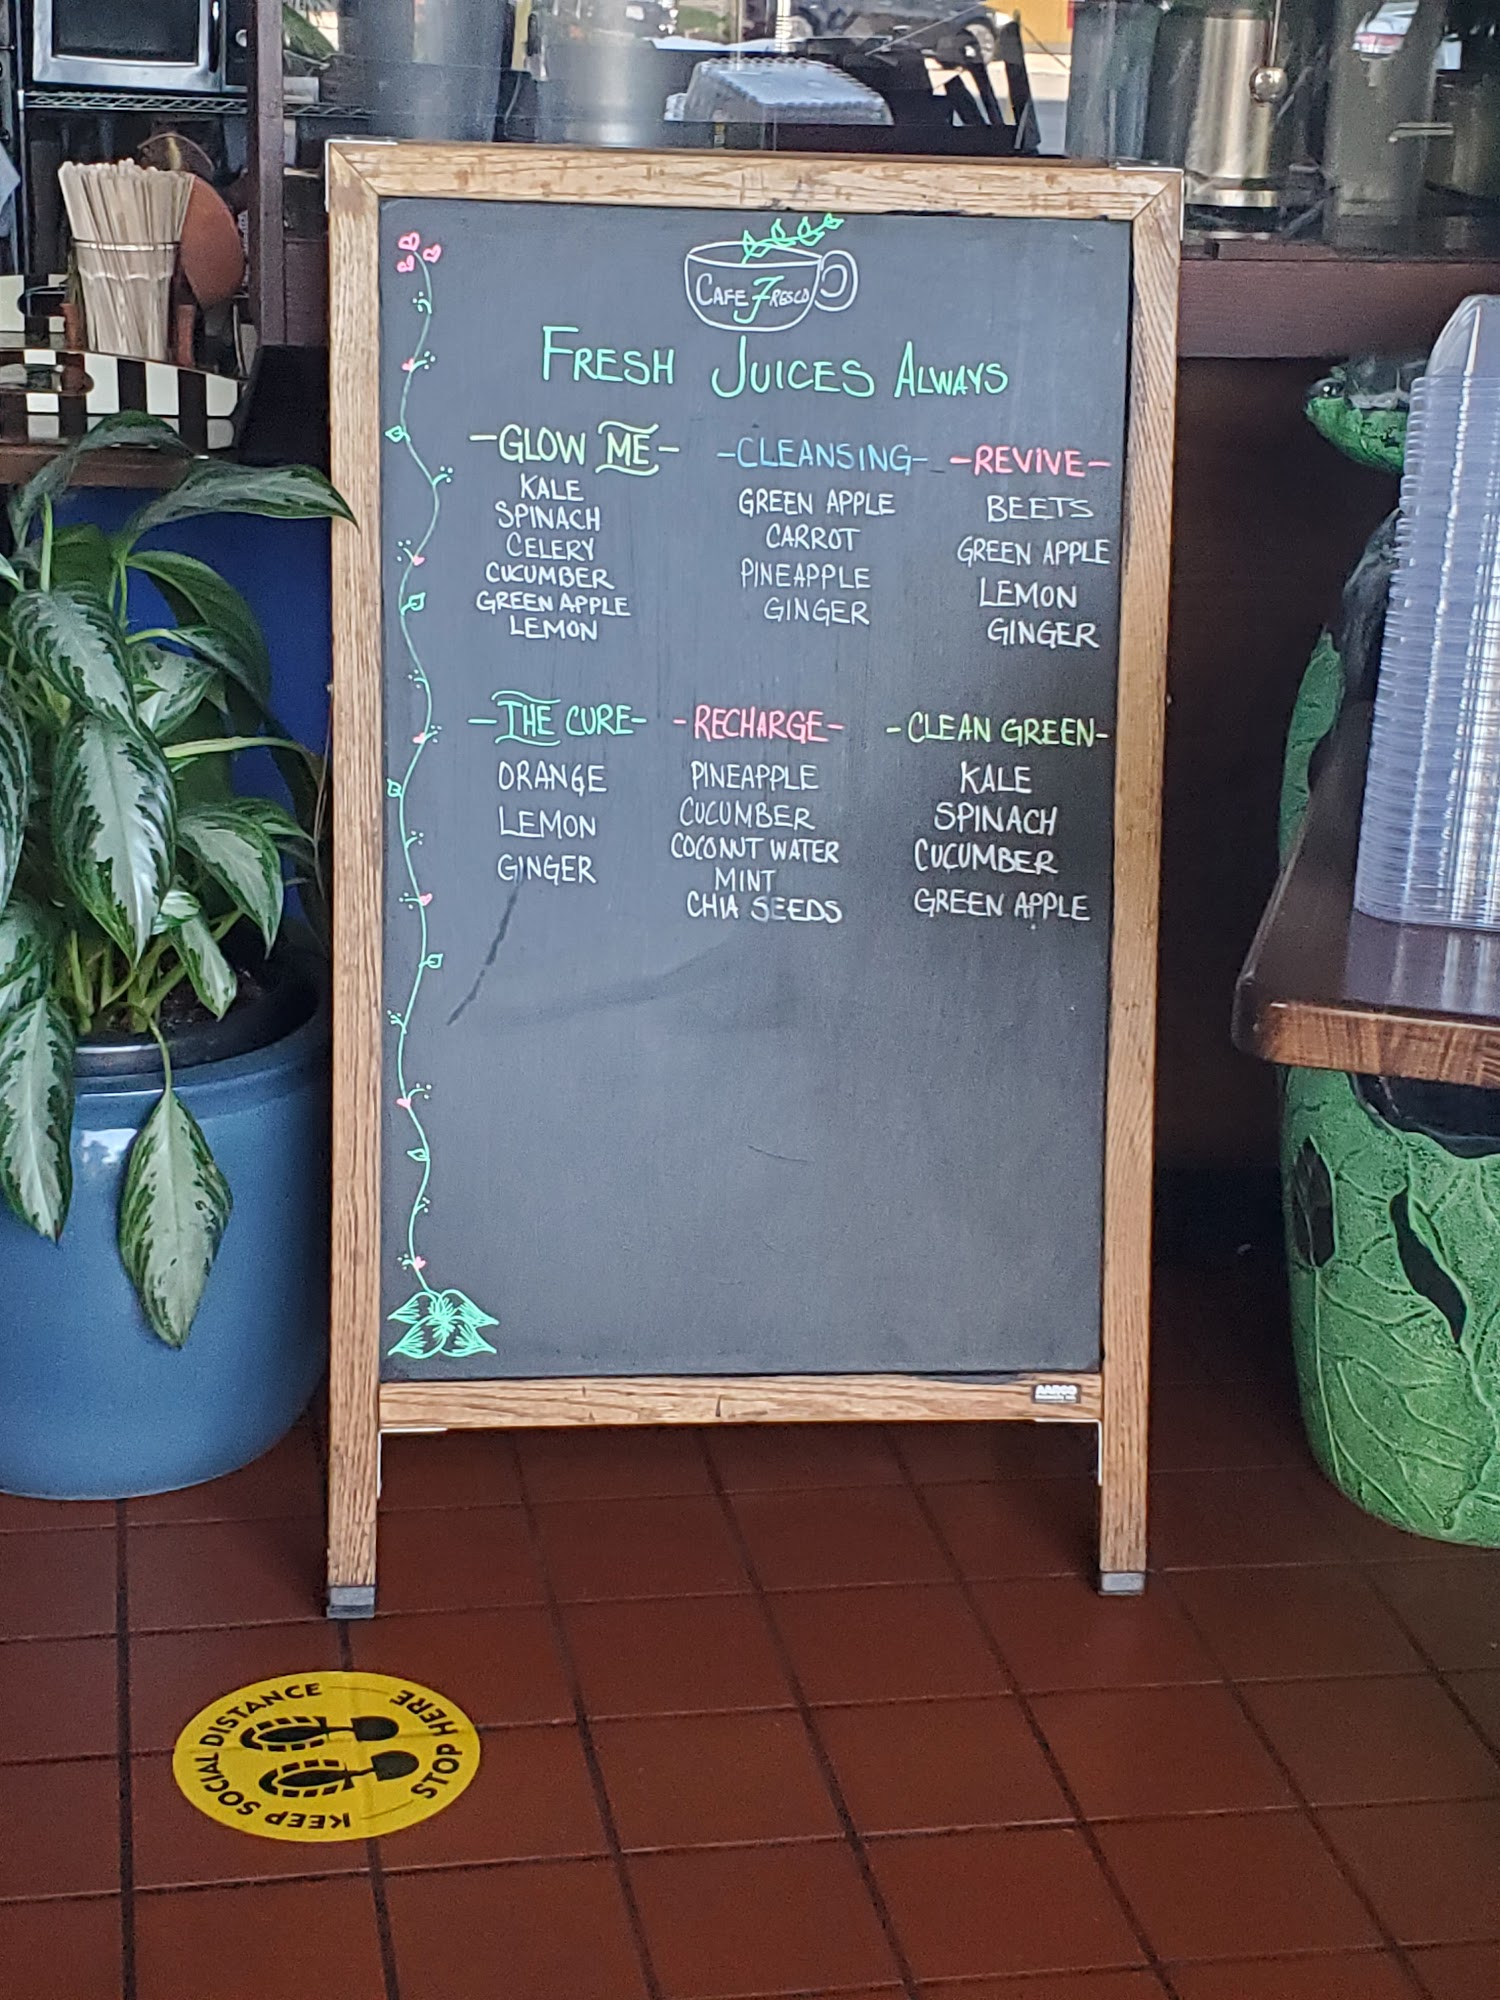 CAFE FRESCO
FRESH JUICES ALWAYS
-GLOW ME-
KALE
SPINACH
CELERY
CUCUMBER
GREEN APPLE
LEMON
-CLEANSING-
GREEN APPLE
CARROT
PINEAPPLE
GINGER
-REVIVE-
BEETS
GREEN APPLE
LEMON
GINGER
-THE CURE-
ORANGE
LEMON
GINGER
-RECHARGE-
PINEAPPLE
CUCUMBER
COCONUT WATER
MINT
CHIA SEEDS
-CLEAN GREEN-
KALE
SPINACH
CUCUMBER
GREEN APPLE
AARCO
KEEP SOCIAL DISTANCE
STOP HERE